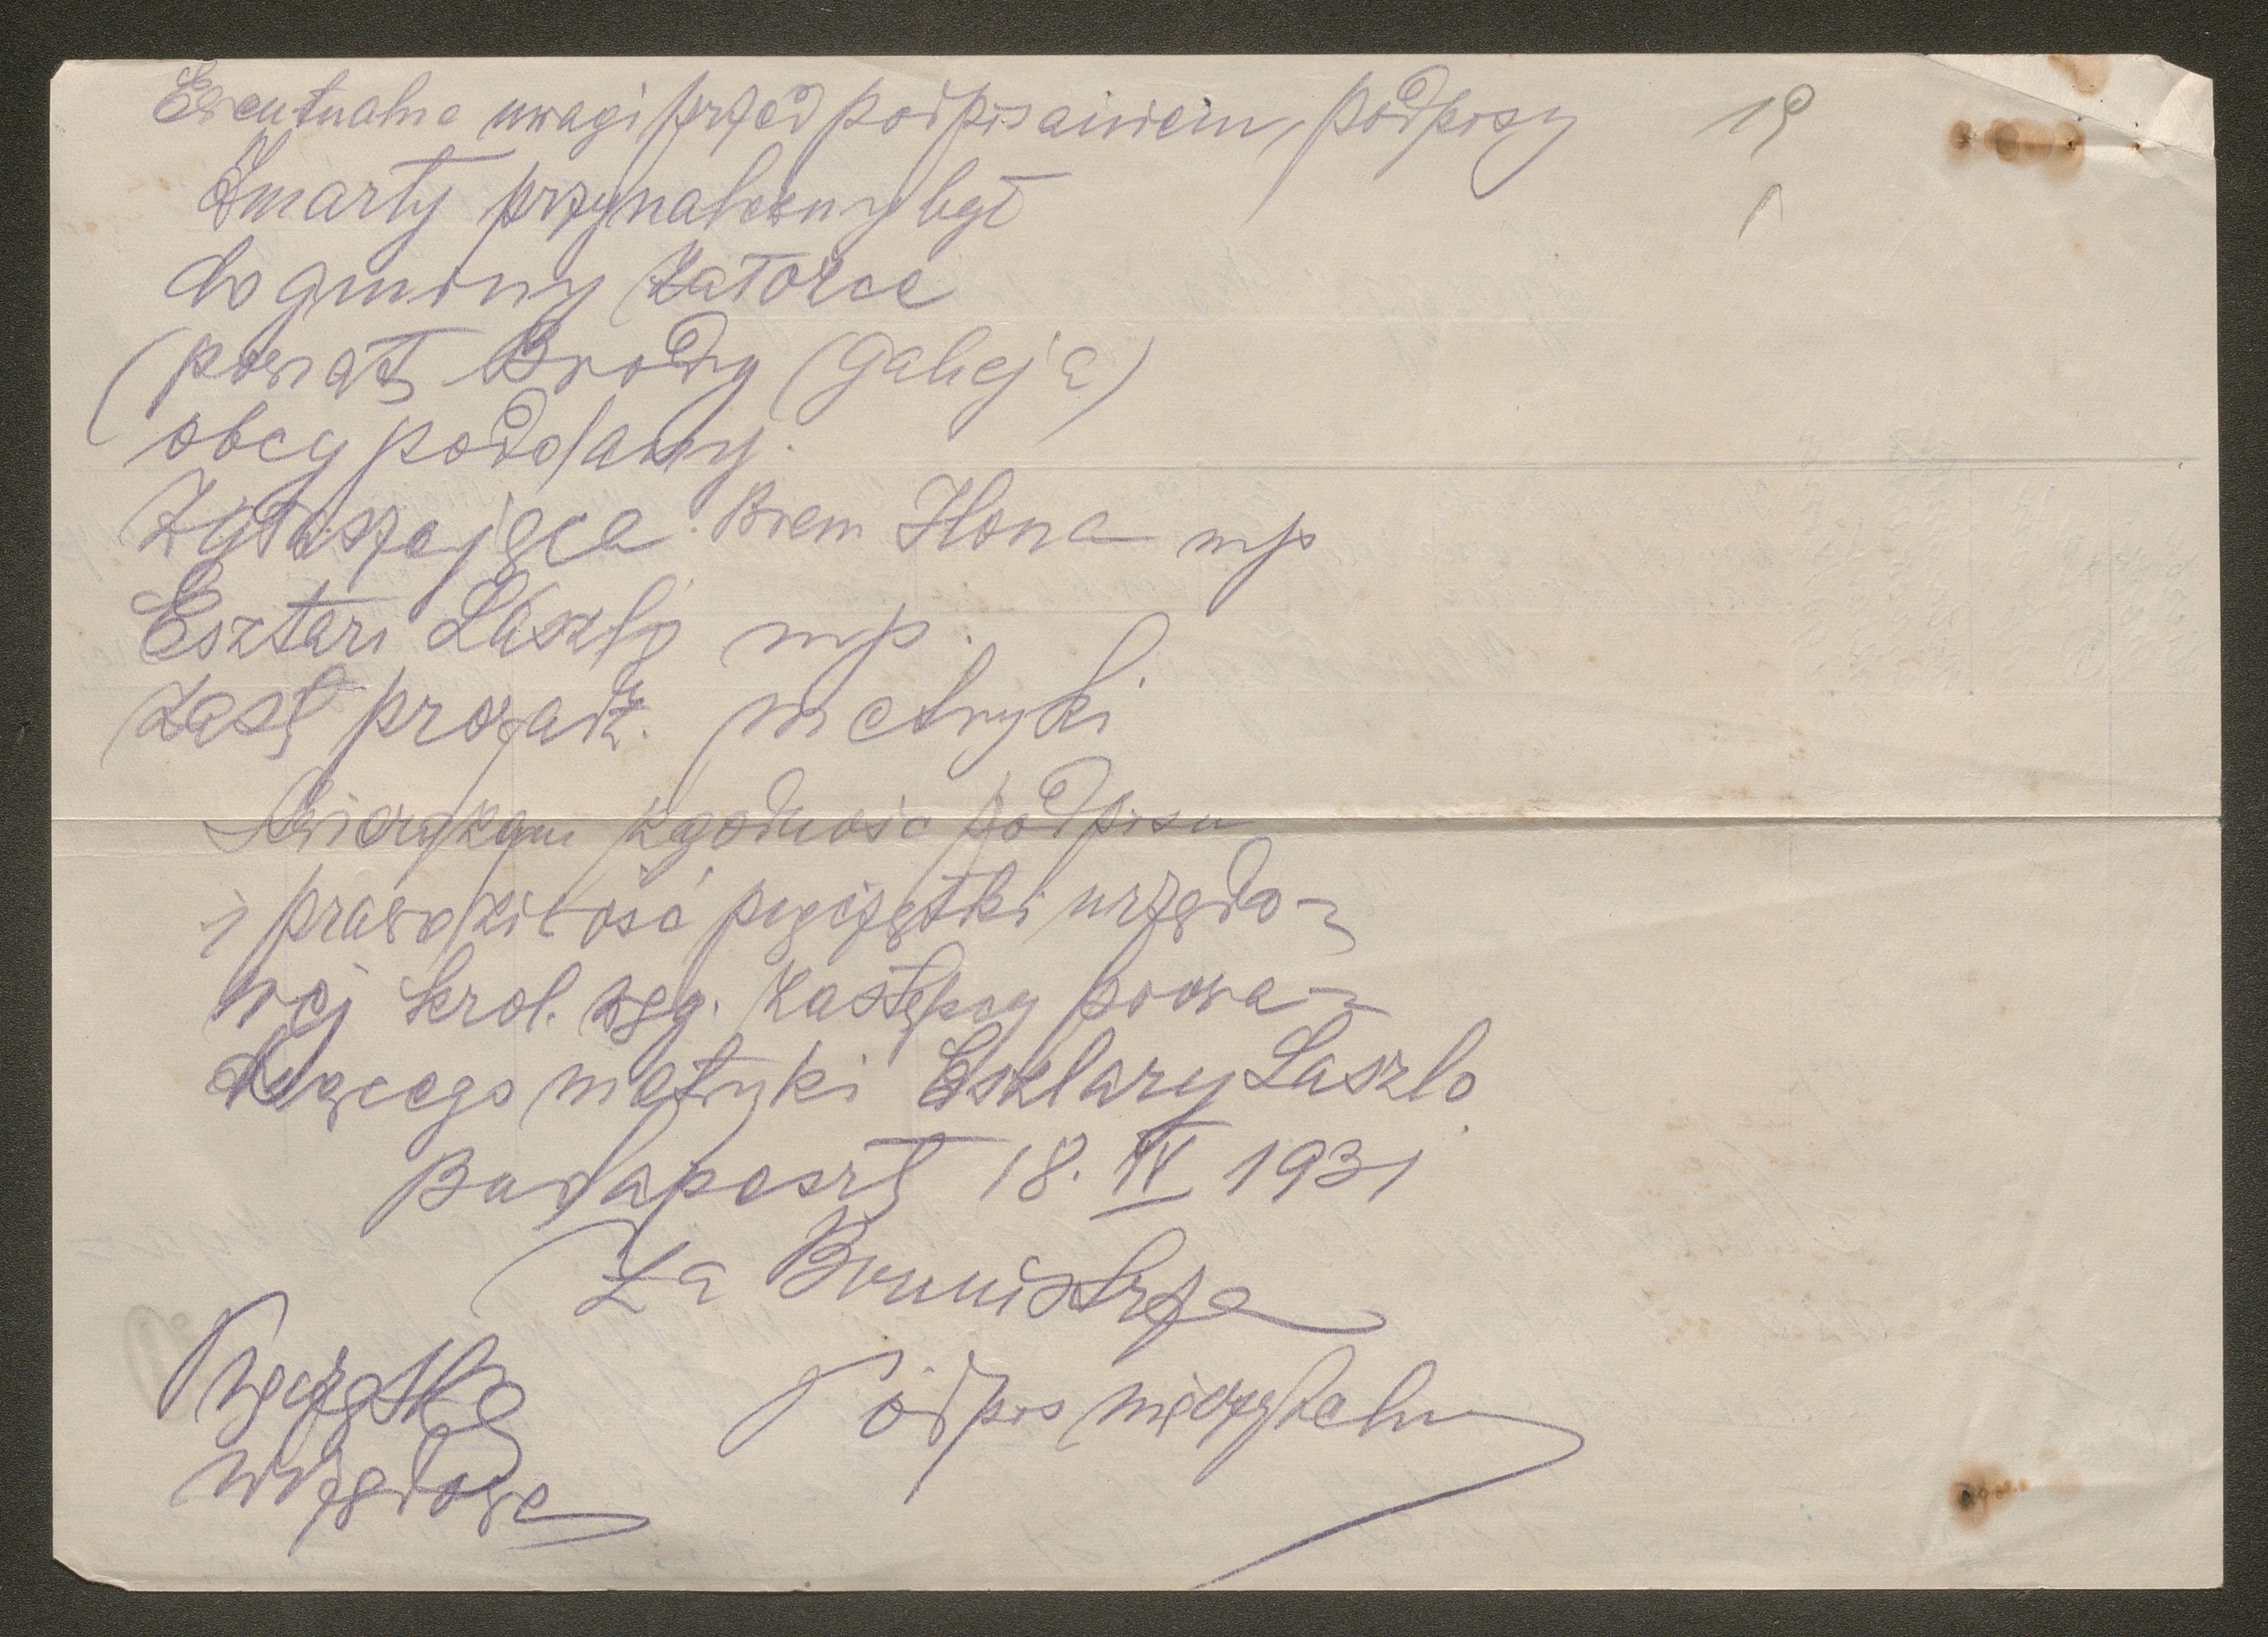 Ewentualne uwagi przed podpisaniem, podpisy 19
Zmarły przynależny był
do gminy Zatorce
(powiat Brody (Galicja)
obcy poddany.
Zgłaszająca: Brem Ilona mp
Esztari László mp.
Zast prowadz. metryki
Wierzytelność podpisu
i prawdziwość pieczątki urzędo-
wej król. węg. zastępcy prowa-
dzącego metryki Esztary Laszlo
Budapeszt 18. IV 1931
Za Burmistrza
Pieczątka Podpis nieczytelny
urzędowa